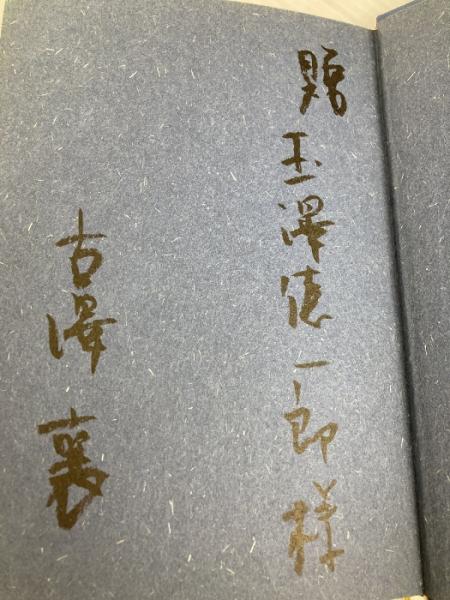 贈 玉澤徳一郎様
古澤 襄